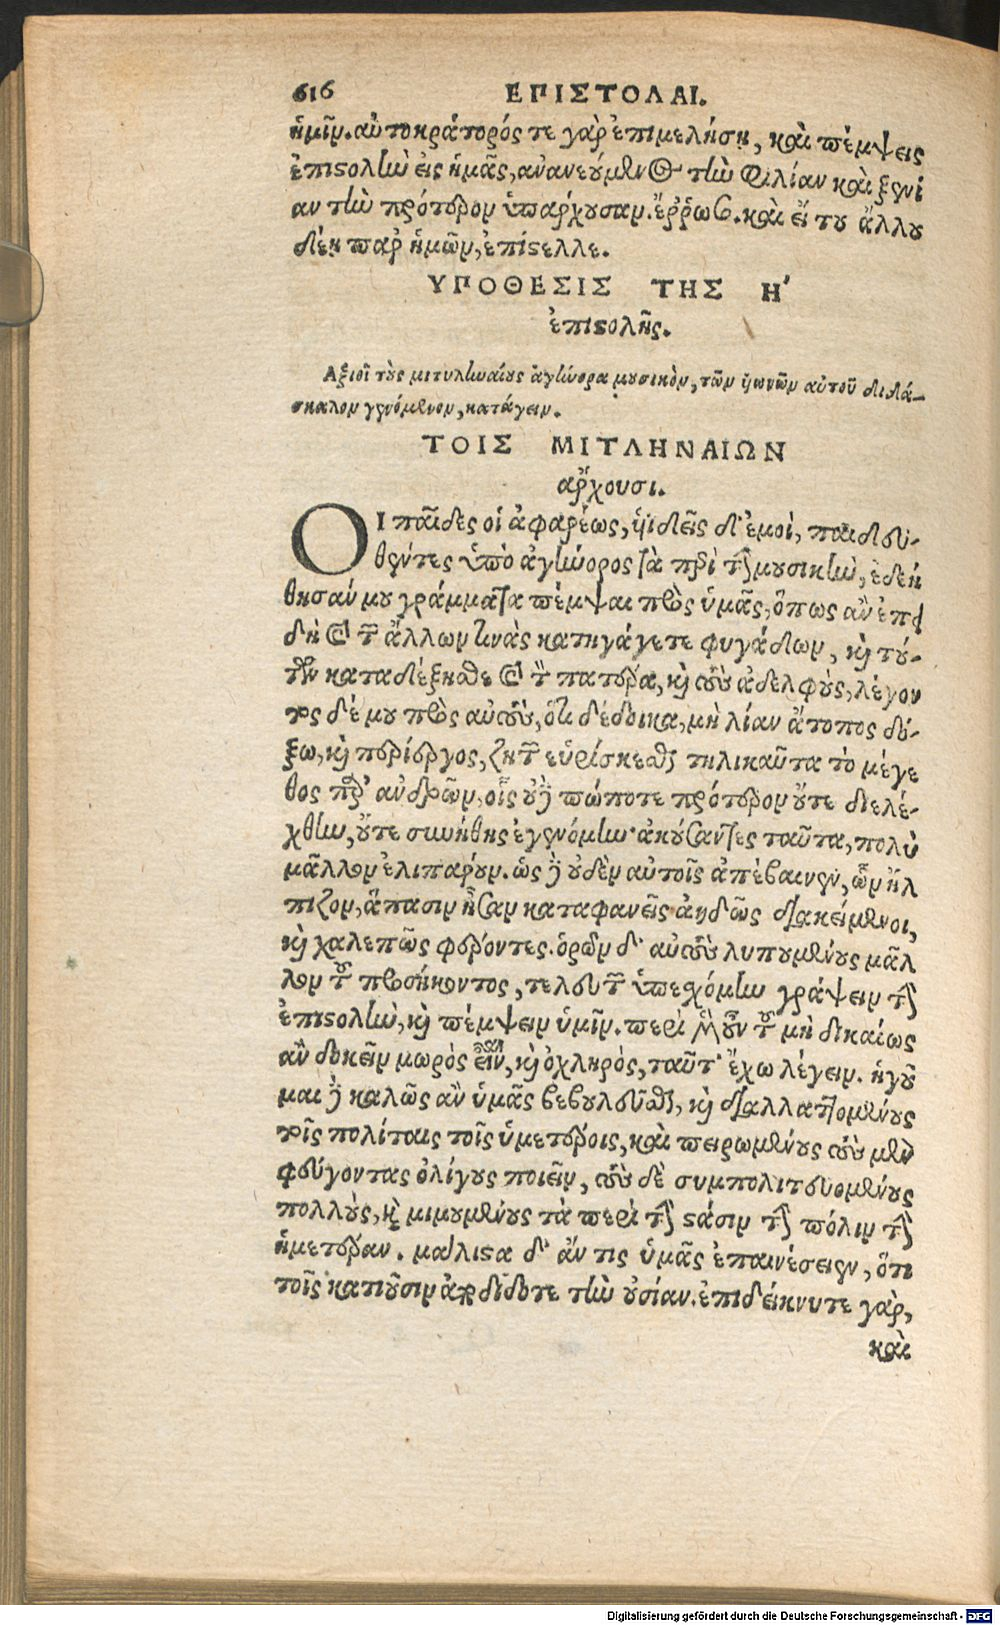 616 ΕΠΙΣΤΟΛΑΙ.
ἡμῖν. αὐτοκράτορός τε γὰρ ἐπιμελήσῃ, καὶ πέμψεις
ἐπιστολὴν εἰς ἡμᾶς, ἀνανεούμενος τὴν φιλίαν καὶ ξενί
αν τὴν πρότερον ὑπάρχουσαν. ἔῤῥωσο. καὶ εἴ του ἄλλου
δέῃ παρ' ἡμῶν, ἐπίστελλε.
ΥΠΟΘΕΣΙΣ ΤΗΣ Η'
ἐπιστολῆς.
Αξιοῖ τοὺς μιτυληναίους ἀγήνορα μουσικὸν, τῶν ὑωνῶν αὐτοῦ διδά-
σκαλον γενόμενον, κατάγειν.
ΤΟΙΣ ΜΙΤΛΗΝΑΙΩΝ
ἄρχουσι.
ΟΙ παῖδες οἱ ἀφαρέως, ὑϊδεῖς δ' ἐμοὶ, παιδευ-
θέντες ὑπὸ ἀγήνορος τὰ περὶ τὴν μουσικὴν, ἐδεή
θησάν μου γράμματα πέμψαι πρὸς ὑμᾶς, ὅπως ἂν ἐπει
δὴ καὶ τῶν ἄλλων τινὰς κατηγάγετε φυγάδων, καὶ τού-
των καταδέξησθε καὶ τὸν πατέρα, καὶ τοὺς ἀδελφοὺς, λέγον
τος δέ μου πρὸς αὐτοὺς, ὅτι δέδοικα, μὴ λίαν ἄτοπος δό-
ξω, καὶ περίεργος, ζητῶν εὑρίσκεσθαι τηλικαῦτα τὸ μέγε
θος παρ' ἀνδρῶν, οἷς οὐδὲ πώποτε πρότερον οὔτε διελέ-
χθην, οὔτε συνήθης ἐγενόμην· ἀκούσαντες ταῦτα, πολὺ
μᾶλλον ἐλιπάρουν. ὡς δὲ οὐδὲν αὐτοῖς ἀπέβαινεν, ὧν ἤλ
πιζον, ἅπασιν ἦσαν καταφανεῖς ἀηδῶς διακείμενοι,
καὶ χαλεπῶς φέροντες. ὁρῶν δ' αὐτοὺς λυπουμένους μᾶλ
λον τοῦ προσήκοντος, τελευτῶν ὑπεσχόμην γράψειν τὴν
ἐπιστολὴν, καὶ πέμψειν ὑμῖν. περὶ μὲν οὖν τοῦ μὴ δικαίως
ἂν δοκεῖν μωρὸς εἶναι, καὶ ὀχληρὸς, ταῦτ' ἔχω λέγειν. ἡγοῦ
μαι δὲ καλῶς ἂν ὑμᾶς βεβουλεῦσθαι, καὶ διαλλαττομένους
τοῖς πολίταις τοῖς ὑμετέροις, καὶ πειρωμένους τοὺς μὲν
φεύγοντας ὀλίγους ποιεῖν, τοὺς δὲ συμπολιτευομένους
πολλοὺς, καὶ μιμουμένους τὰ περὶ τὴν στάσιν τὴν πόλιν τὴν
ἡμετέραν. μάλιστα δ' ἄν τις ὑμᾶς ἐπαινέσειεν, ὅτι
τοῖς κατιοῦσιν ἀποδίδοτε τὴν οὐσίαν. ἐπιδείκνυτε γὰρ,
καὶ
Digitalisierung gefördert durch die Deutsche Forschungsgemeinschaft - DFG